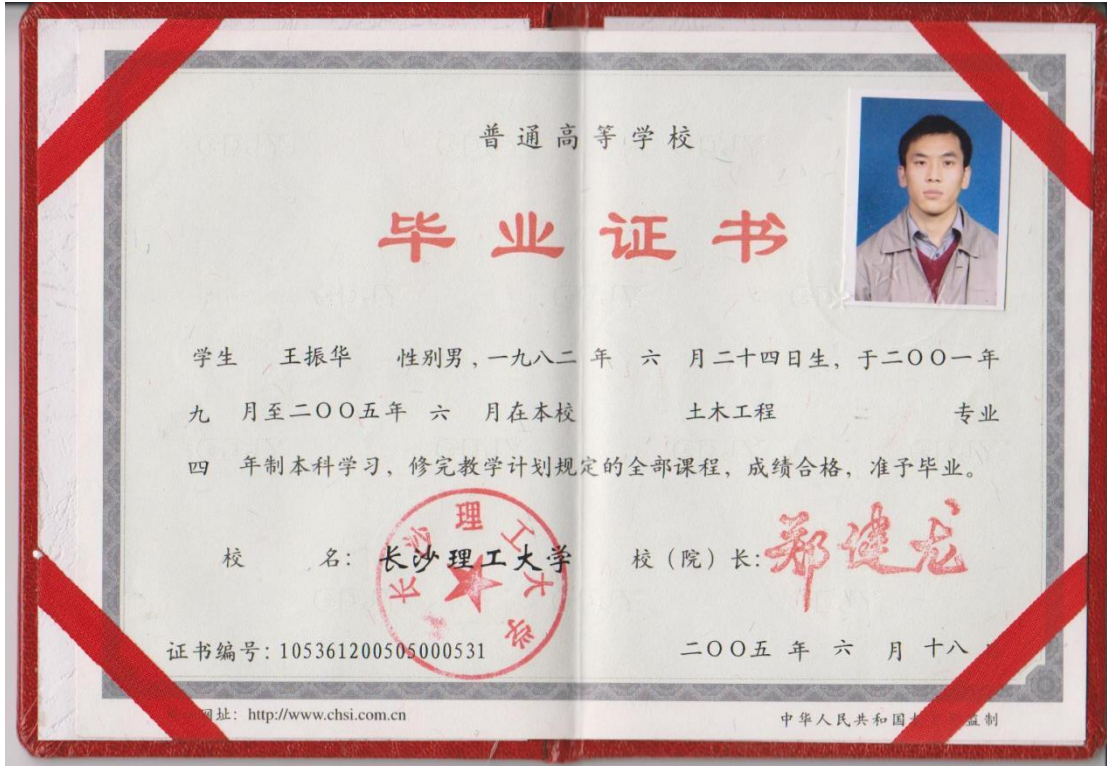 普通高等学校
毕业证书
学生 王振华 性别男，一九八二 年 六 月二十四日生，于二〇〇一年
九 月至二〇〇五年 六 月在本校 土木工程 专业
四 年制本科学习，修完教学计划规定的全部课程，成绩合格，准予毕业。
校 名：长沙理工大学 校（院）长：郑健龙
长沙理工大学
证书编号：105361200505000531 二〇〇五 年 六 月 十八
网址：http://www.chsi.com.cn 中华人民共和国 监制